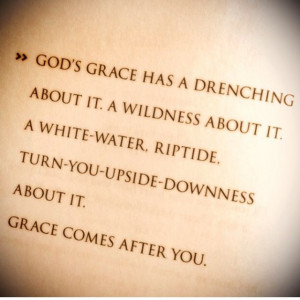 » GOD'S GRACE HAS A DRENCHING
ABOUT IT. A WILDNESS ABOUT IT.
A WHITE-WATER, RIPTIDE,
TURN-YOU-UPSIDE-DOWNNESS
ABOUT IT.
GRACE COMES AFTER YOU.